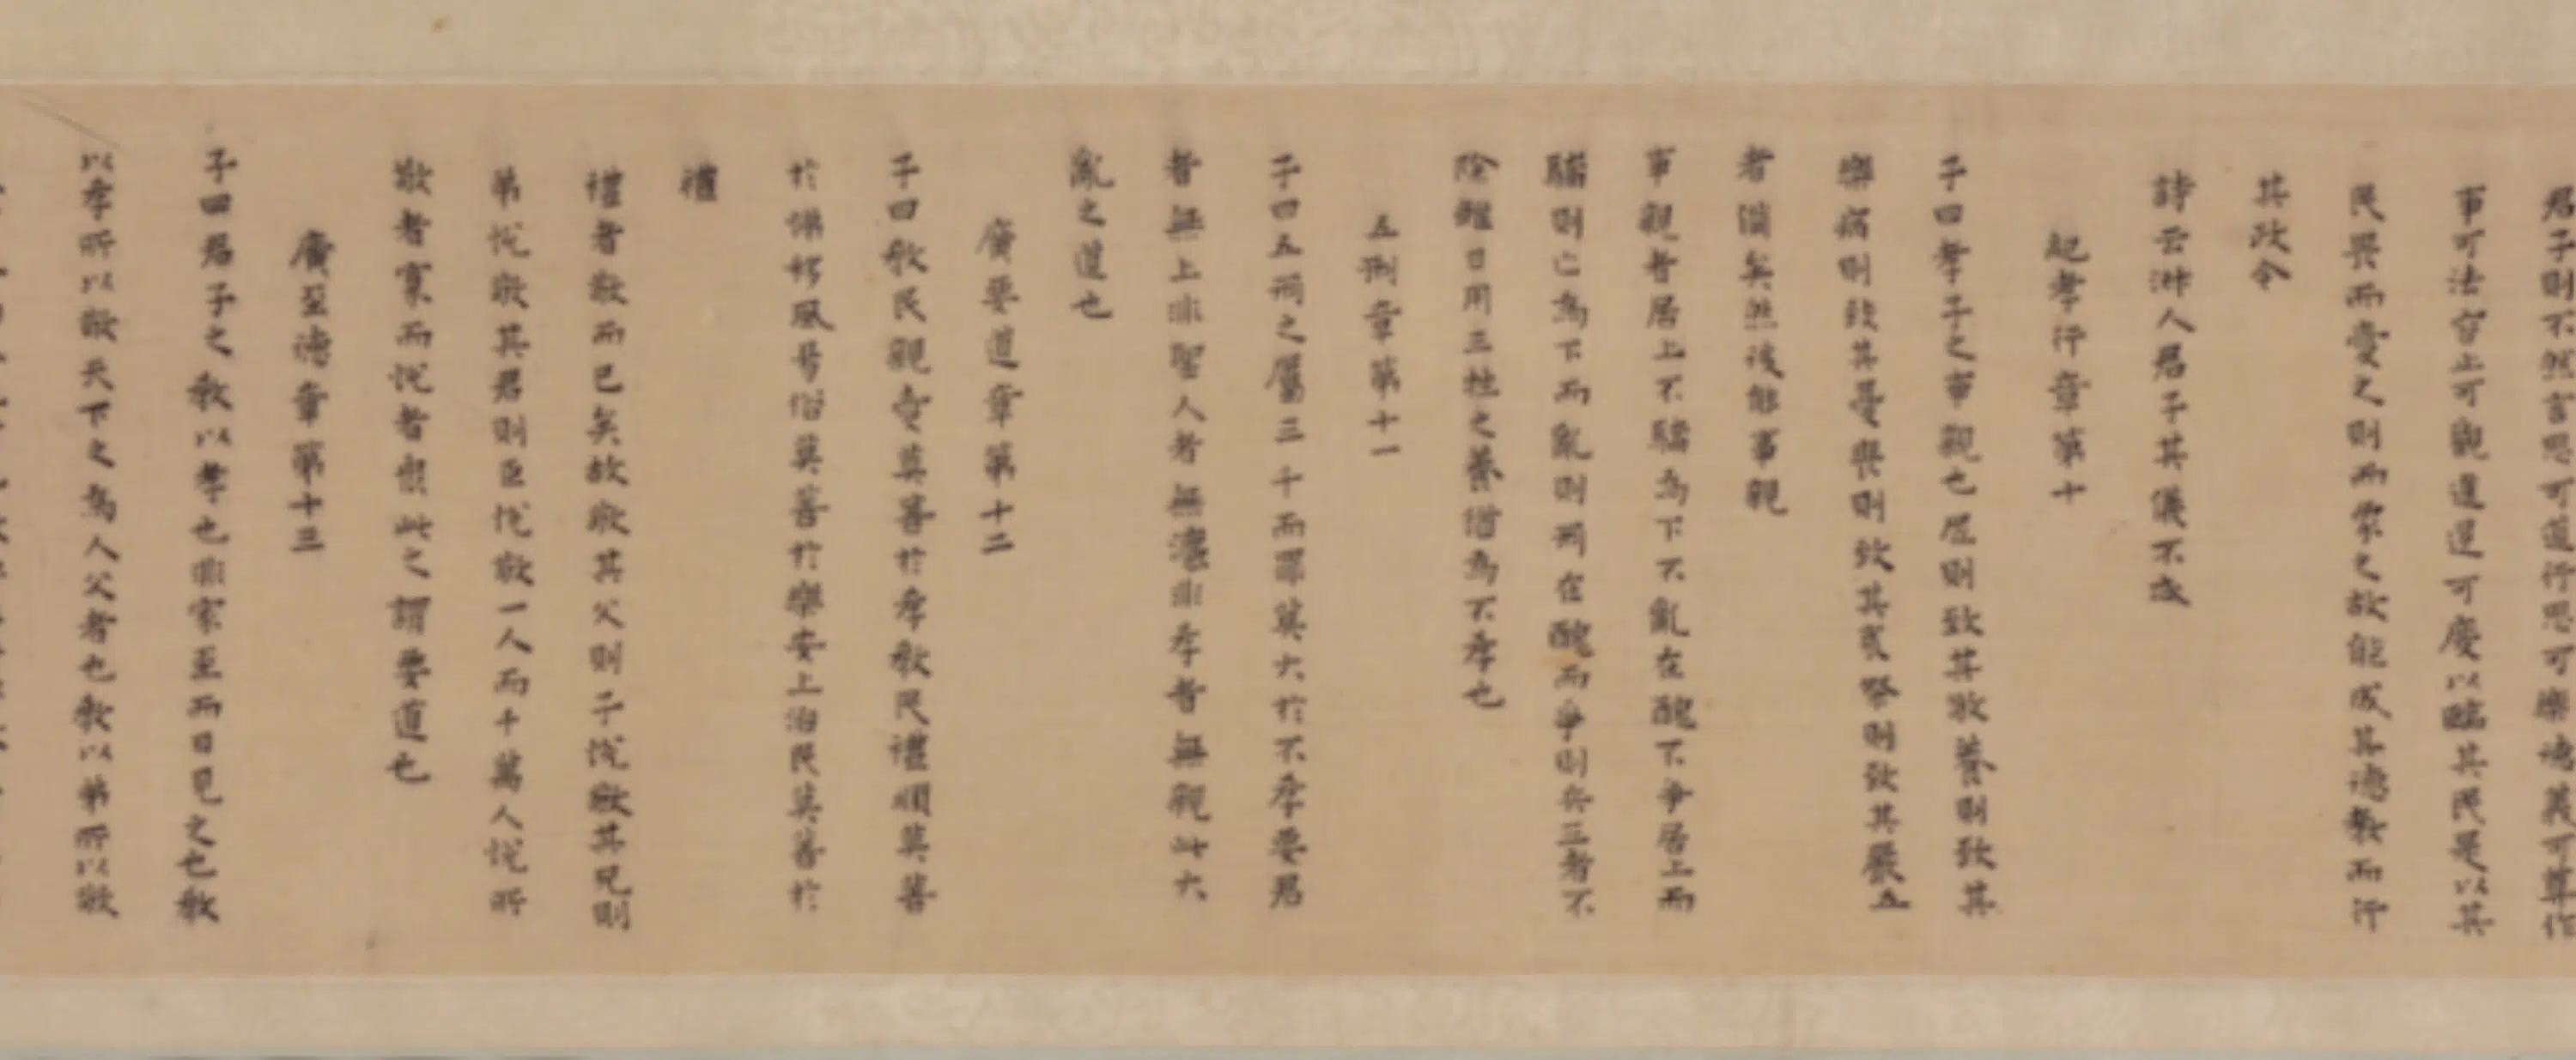 君子則不然言思可道行思可樂德義可尊作
事可法容止可觀進退可度以臨其民是以其
民畏而愛之則而象之故能成其德教而行
其政令
詩云淑人君子其儀不忒
紀孝行章第十
子曰孝子之事親也居則致其敬養則致其
樂病則致其憂喪則致其哀祭則致其嚴五
者備矣然後能事親
事親者居上不驕為下不亂在醜不爭居上而
驕則亡為下而亂則刑在醜而爭則兵三者不
除雖日用三牲之養猶為不孝也
五刑章第十一
子曰五刑之屬三千而罪莫大於不孝要君
者無上非聖人者無灋非孝者無親此大
亂之道也
廣要道章第十二
子曰教民親愛莫善於孝教民禮順莫善
於悌移風易俗莫善於樂安上治民莫善於
禮
禮者敬而已矣故敬其父則子悅敬其兄則
弟悅敬其君則臣悅敬一人而千萬人悅所
敬者寡而悅者衆此之謂要道也
廣至德章第十三
子曰君子之教以孝也非家至而日見之也教
以孝所以敬天下之為人父者也教以弟所以敬